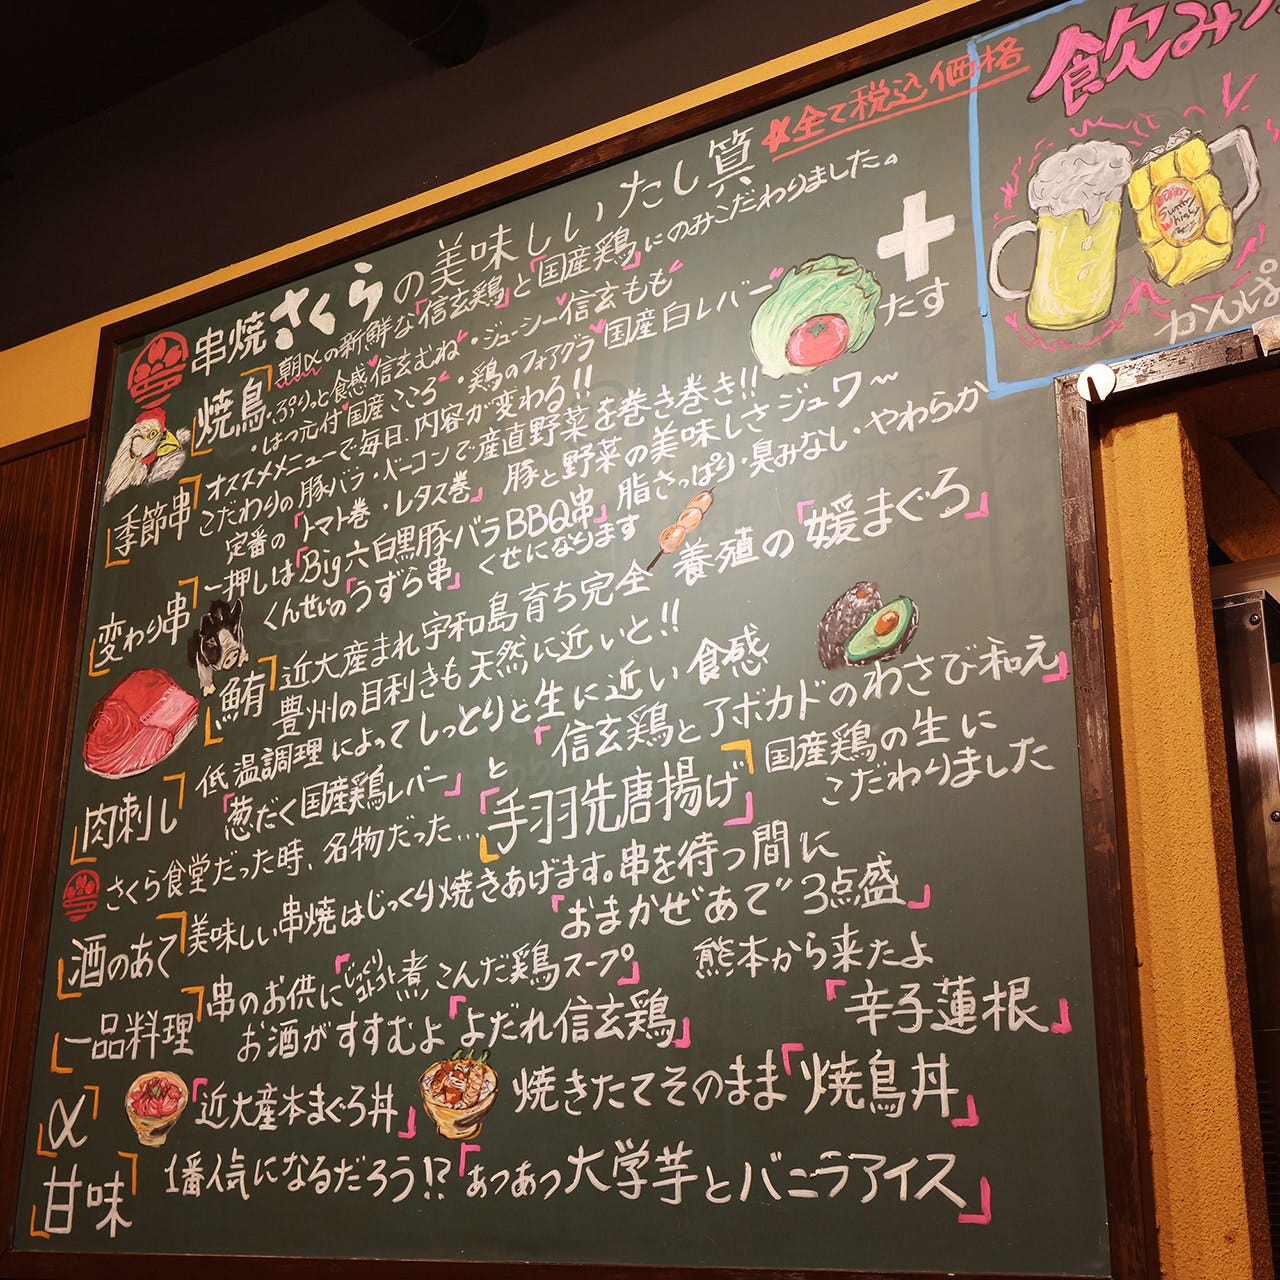 串焼さくらの美味しいたし算
※全て税込価格
焼鳥
朝〆の新鮮な「信玄鶏」と「国産鶏」にのみこだわりました。
・ぷりっと食感"信玄むね"・ジューシー"信玄もも"
・はつ元付"国産こころ"・鶏のフォアグラ"国産白レバー"
+
たす
季節串
オススメメニューで毎日、内容が変わる!!
こだわりの豚バラ・ベーコンで産直野菜を巻き巻き!!
定番の「トマト巻・レタス巻」 豚と野菜の美味しさジュワ〜
変わり串
一押しは「Big六白黒豚バラBBQ串」脂さっぱり・臭みない・やわらか
くんせいの「うずら串」くせになります
鮪
近大産まれ宇和島育ち完全養殖の「媛まぐろ」
豊州の目利きも天然に近いと!!
肉刺し
低温調理によってしっとりと生に近い食感
「葱だく国産鶏レバー」と「信玄鶏とアボカドのわさび和え」
さくら食堂だった時、名物だった…「手羽先唐揚げ」
国産鶏の生に
こだわりました
酒のあて
美味しい串焼はじっくり焼きあげます。串を待つ間に
「おまかせ"あて"3点盛」
一品料理
串のお供に「じっくりコトコト煮こんだ鶏スープ」
お酒がすすむよ「よだれ信玄鶏」
熊本から来たよ
「辛子蓮根」
〆
「近大産本まぐろ丼」
焼きたてそのまま「焼鳥丼」
甘味
1番人気になるだろう!?「あつあつ大学芋とバニラアイス」
飲み
かんぱ